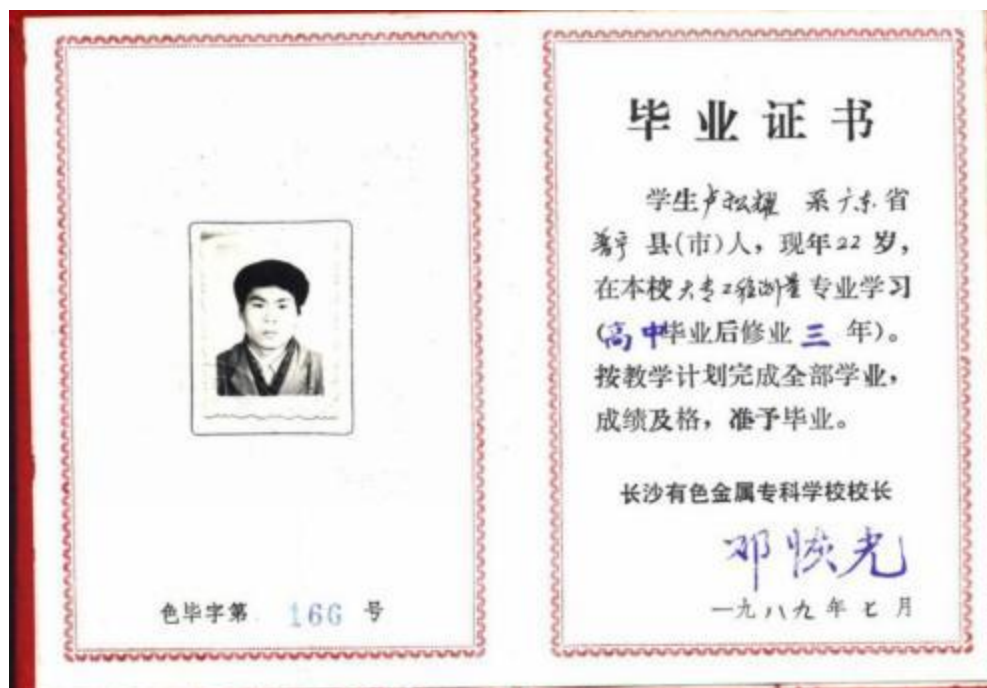 色毕字第 166 号
毕业证书
学生卢松耀 系广东省
普宁县(市)人，现年22岁，
在本校大专工程测量专业学习
(高中毕业后修业三年)。
按教学计划完成全部学业，
成绩及格，准予毕业。
长沙有色金属专科学校校长
邓 光
一九八九年七月